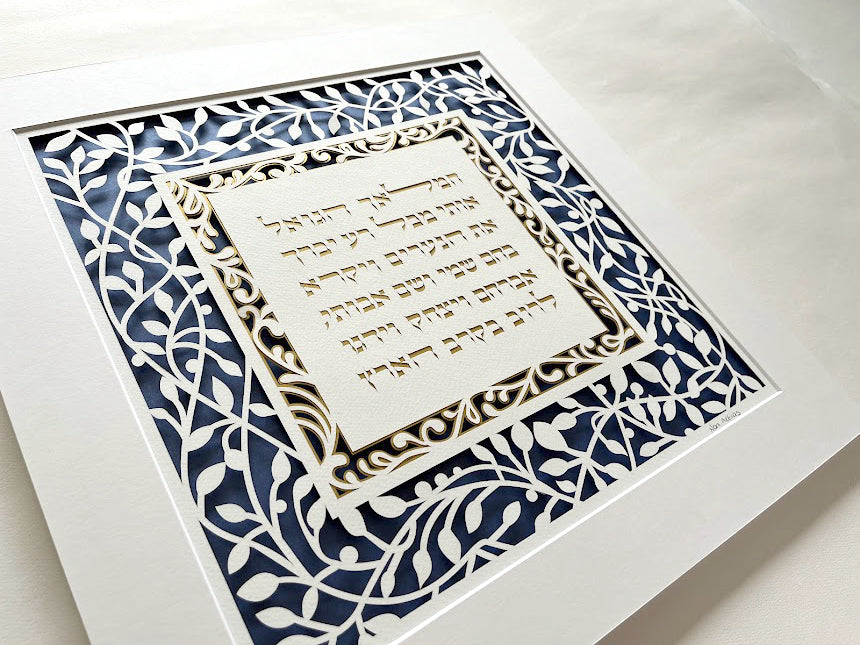 המלאך הגואל
אותי מכל רע יברך
את הנערים ויקרא
בהם שמי ושם אבותי
אברהם ויצחק וידגו
לרוב בקרב הארץ